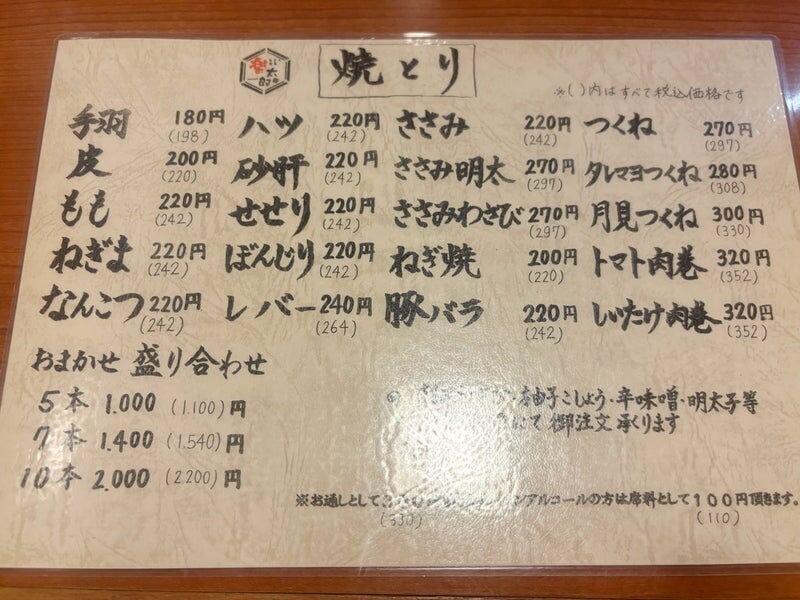 焼とり
※( )内はすべて税込価格です
手羽 180円 (198)
皮 200円 (220)
もも 220円 (242)
ねぎま 220円 (242)
なんこつ 220円 (242)
ハツ 220円 (242)
砂肝 220円 (242)
せせり 220円 (242)
ぼんじり 220円 (242)
レバー 240円 (264)
ささみ 220円 (242)
ささみ明太 270円 (297)
ささみわさび 270円 (297)
ねぎ焼 200円 (220)
豚バラ 220円 (242)
つくね 270円 (297)
タレマヨつくね 280円 (308)
月見つくね 300円 (330)
トマト肉巻 320円 (352)
しいたけ肉巻 320円 (352)
おまかせ 盛り合わせ
5本 1.000 (1.100)円
7本 1.400 (1.540)円
10本 2.000 (2200)円
柚子こしょう・辛味噌・明太子等
にて御注文承ります
※お通しとして アルコールの方は席料として100円頂きます。
(330) (110)